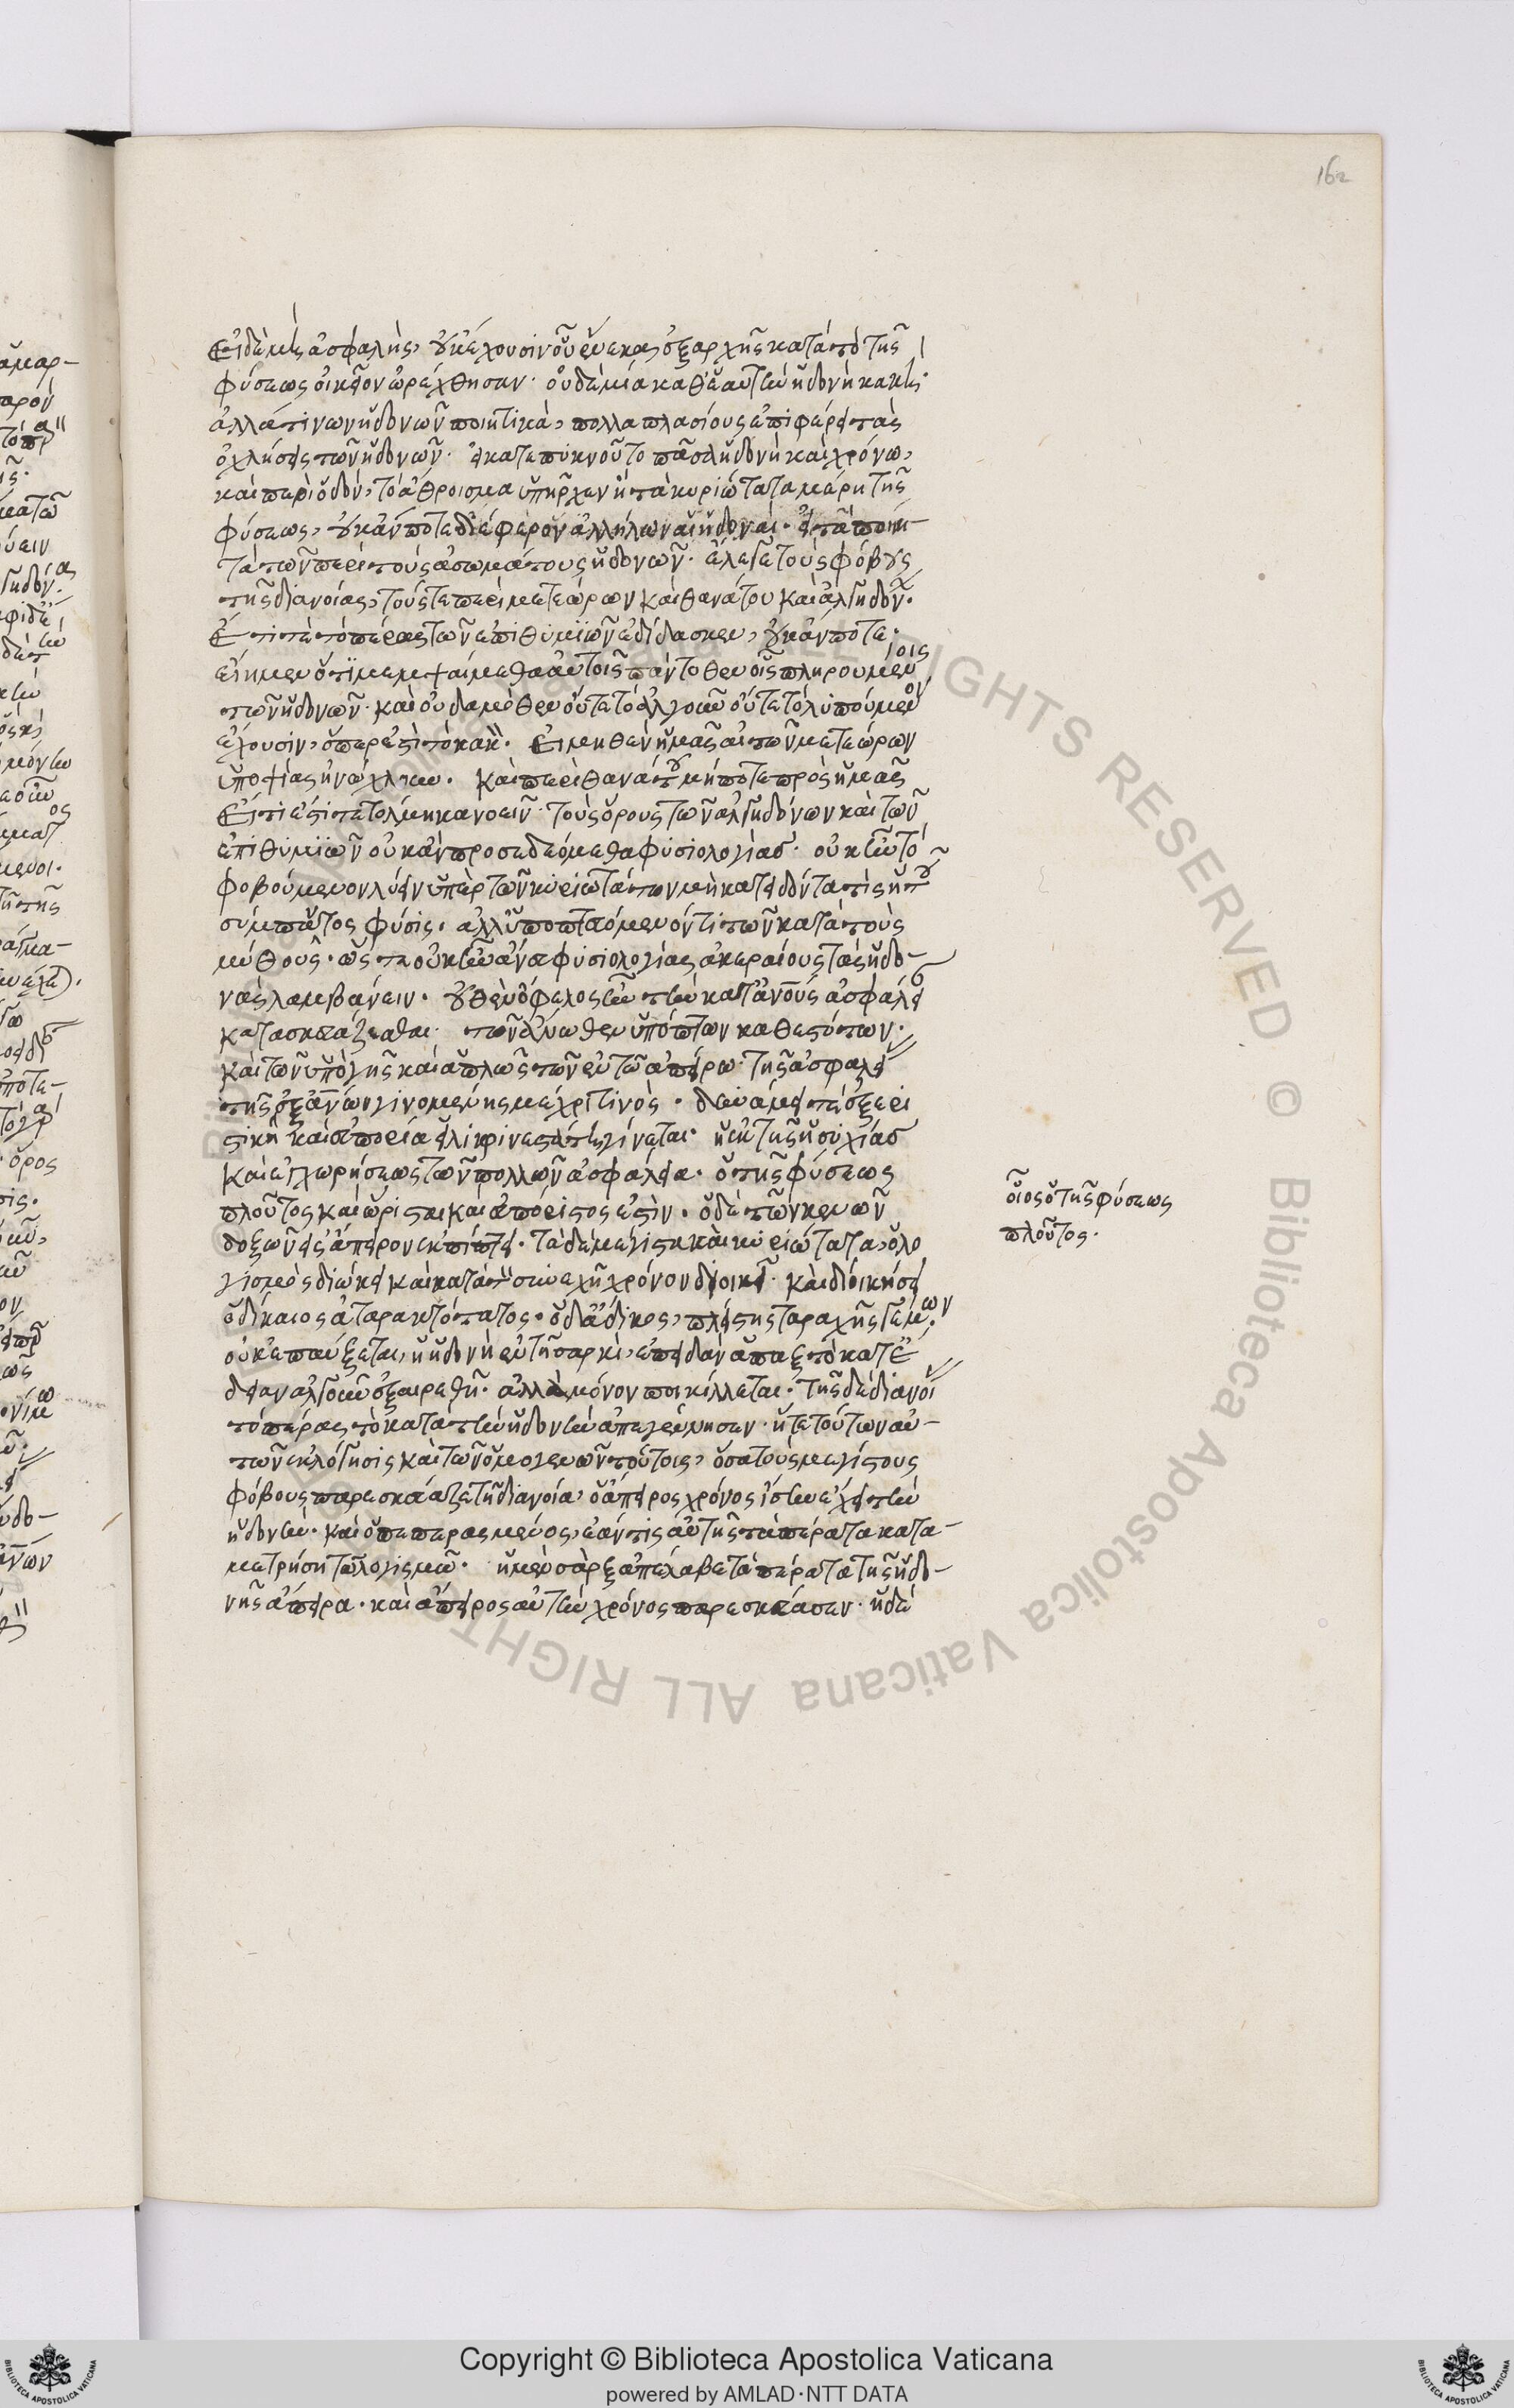 162
εἰ δὲ μὴ ἀσφαλὴς, οὐκ ἔχουσιν οὗ ἕνεκα ἐξ αρχῆς κατὰ τὸ τῆς
φύσεως οἰκεῖον ὠρέχθησαν· οὐδεμία καθ' ἑαυτὴν ἡδονὴ κακὴ·
ἀλλὰ τινων ἡδονῶν ποιητικὰ, πολλαπλασίους επιφέρει τὰς
ὀχλήσεις τῶν ἡδονῶν· εἰ κατεπυκνοῦτο πᾶσα ἡδονὴ καὶ χρόνω,
καὶ περὶ ὁδὸν, τὸ ἄθροισμα ὑπῆρχεν ἢ τὰ κυριώτατα μέρη τῆς
φύσεως, οὐκ ἄν ποτε διέφερον ἀλλήλων αἱ ἡδοναί· εἰ τὰ ποιη-
τὰ τῶν περὶ τοὺς ἀσωμάτους ἡδονῶν· ἔλεγε τοὺς φόβους
τῆς διανοίας, τούς τε περὶ μετεώρων καὶ θανάτου καὶ ἀλγηδόν·
ἔτι τε τὸ πέρας τῶν επιθυμϊῶν εδίδασκεν, οὐκ άν ποτε·
είημεν ὅτϊ μεμψαίμεθα αὐτοῖς πάντοθεν οἷς πληρουμένοις
τῶν ἡδονῶν· καὶ οὐδαμόθεν οὔτε τὸ ἀλγοῦν οὔτε τὸ λυπούμενον
έχουσιν, ὅπερ εστὶ τὸ κακὸν. εἰ μηθὲν ἡμᾶς αἱ τῶν μετεώρων
ὑποψίας ἠνώχλουν. καὶ περὶ θανάτου μήποτε πρὸς ἡμᾶς
εἴ τι ἐστί τε τολμη κανοειν· τοὺς ὅρους τῶν ἀλγηδόνων καὶ τῶν
επιθυμϊῶν οὐκ ἂν προσεδεόμεθα φυσιολογίασ. οὐκ ἦν τὸ
φοβούμενον λύειν ὑπὲρ τῶν κυριωτάτων μὴ κατειδότα τίς ἡ τοῦ
σύμπαντος φύσις. αλλ' ὑποπταόμενον τι τῶν κατὰ τοὺς
μύθους· ὥς τε οὐκ ἦν ἄνευ φυσιολογίας ακεραίους τὰς ἡδο-
νὰς λαμβάνειν. οὐθὲν ὄφελος ἦν τὴν κατ' ἀνους ἀσφάλει
κατασκευάζεσθαι τῶν ἄνωθεν ὑπόπτων καθεστότων.
καὶ τῶν ὑπὸ γῆς καὶ ἁπλῶς τῶν εν τῶ ἀπείρω· τῆς ἀσφαλεί
τῆς ἐξ ἀνων γινομένης μέχρι τινὸς. δυνάμει τὲ ἐξερι
στικῆ καὶ εὐπορία εἰλικρινεστάτη γίνεται. ἡ εκ τῆς ἡσυχίασ
καὶ εκχωρήσεως τῶν πολλῶν ἀσφάλεια. ὁ τῆς φύσεως
πλοῦτος καὶ ὥρισται καὶ εὐπόριστος εστὶν. ὁ δὲ τῶν κενῶν
δοξῶν εἰς άπειρον εκπίπτει. τὰ δὲ μέγιστα καὶ κυριώτατα, ὁ λο
γισμὸς διώκει καὶ κατὰ τὸν συνεχῆ χρόνον διοικεῖ. καὶ διοικήσει
ὁ δίκαιος ἀταρακτότατος. ὁ δ' ἄδικος, πλείστης ταραχῆς γέμων.
οὐκ επαύξεται, ἡ ἡδονὴ εν τῆ σαρκὶ, επειδὰν ἅπαξ τὸ κατ' ἔ
δειαν αλγοῦν ἐξαιρεθῆ. αλλὰ μόνον ποικίλλεται. τῆς δὲ διανοί
τὸ πέρας τὸ κατὰ τὴν ἡδονὴν απεγέννησεν. ἥ τε τούτων αὐ-
τῶν εκλόγησις καὶ τῶν ὁμογενῶν τούτοις, ὅσα τοὺς μεγίστους
φόβους παρεσκεύαζε τῆ διανοία, ὁ ἄπειρος χρόνος ἴσην ἔχει τὴν
ἡδονὴν. καὶ ὁ πεπερασμένος, εάν τις αὐτῆς τὰ πέρατα κατα-
μετρήση τῶ λογισμῶ. ἡ μὲν σὰρξ απέλαβε τὰ πέρατα τῆς ἡδο-
νῆς ἄπειρα. καὶ ἄπειρος αὐτὴν χρόνος παρεσκεύασεν. ἡ δὲ
οἷος ὁ τῆς φύσεως
πλοῦτος.
Copyright © Biblioteca Apostolica Vaticana
powered by AMLAD·NTT DATA